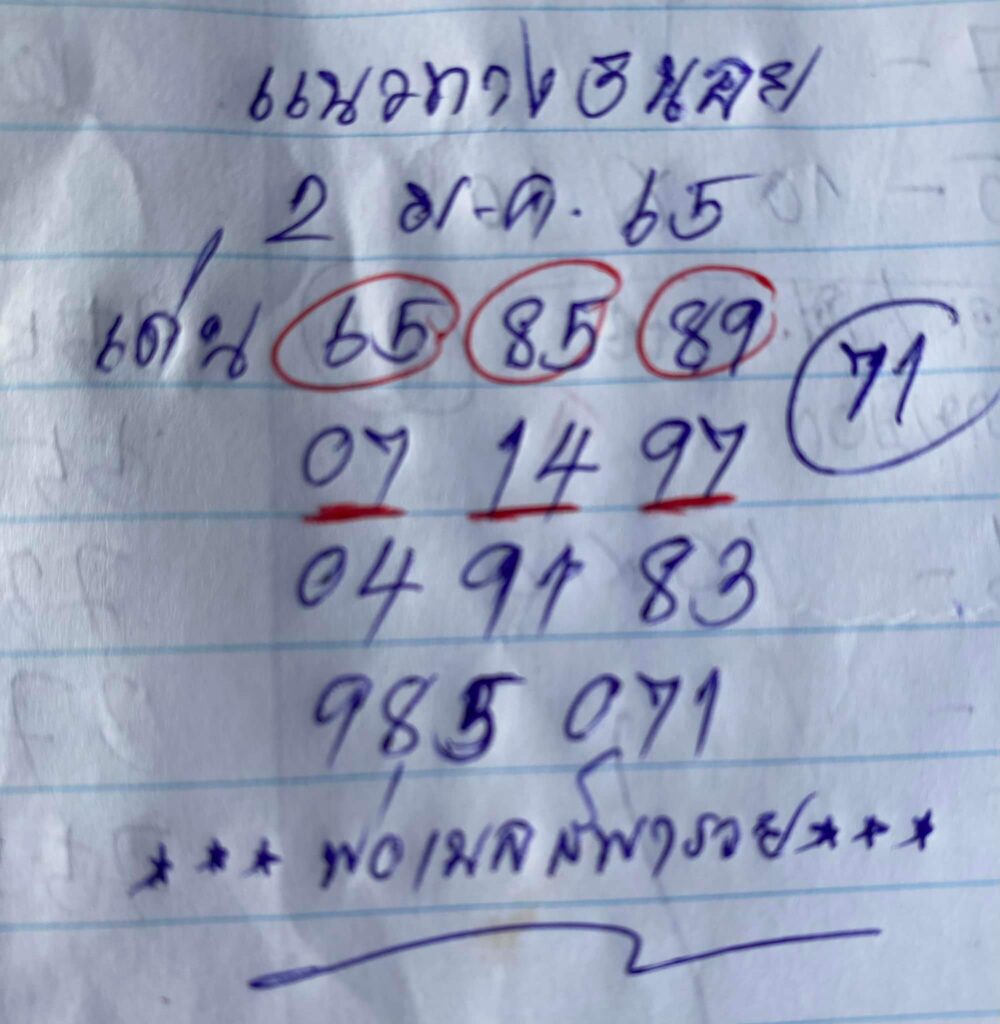 แนวทางฮานอย
2 ม.ค. 65
เด่น 65 85 89 71
07 14 97
04 91 83
985 071
*** พ่อเมล์พารวย ***